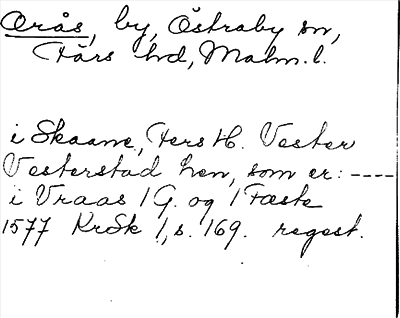 Orås, by, Östraby sn,
Färs hd, Malm. l.
i Skaane, Fers H. Vester
Vesterstad hen, som er: ----
i Vraas 1 G. og 1 Fæste
1577 KrSk 1, s. 169. regest.